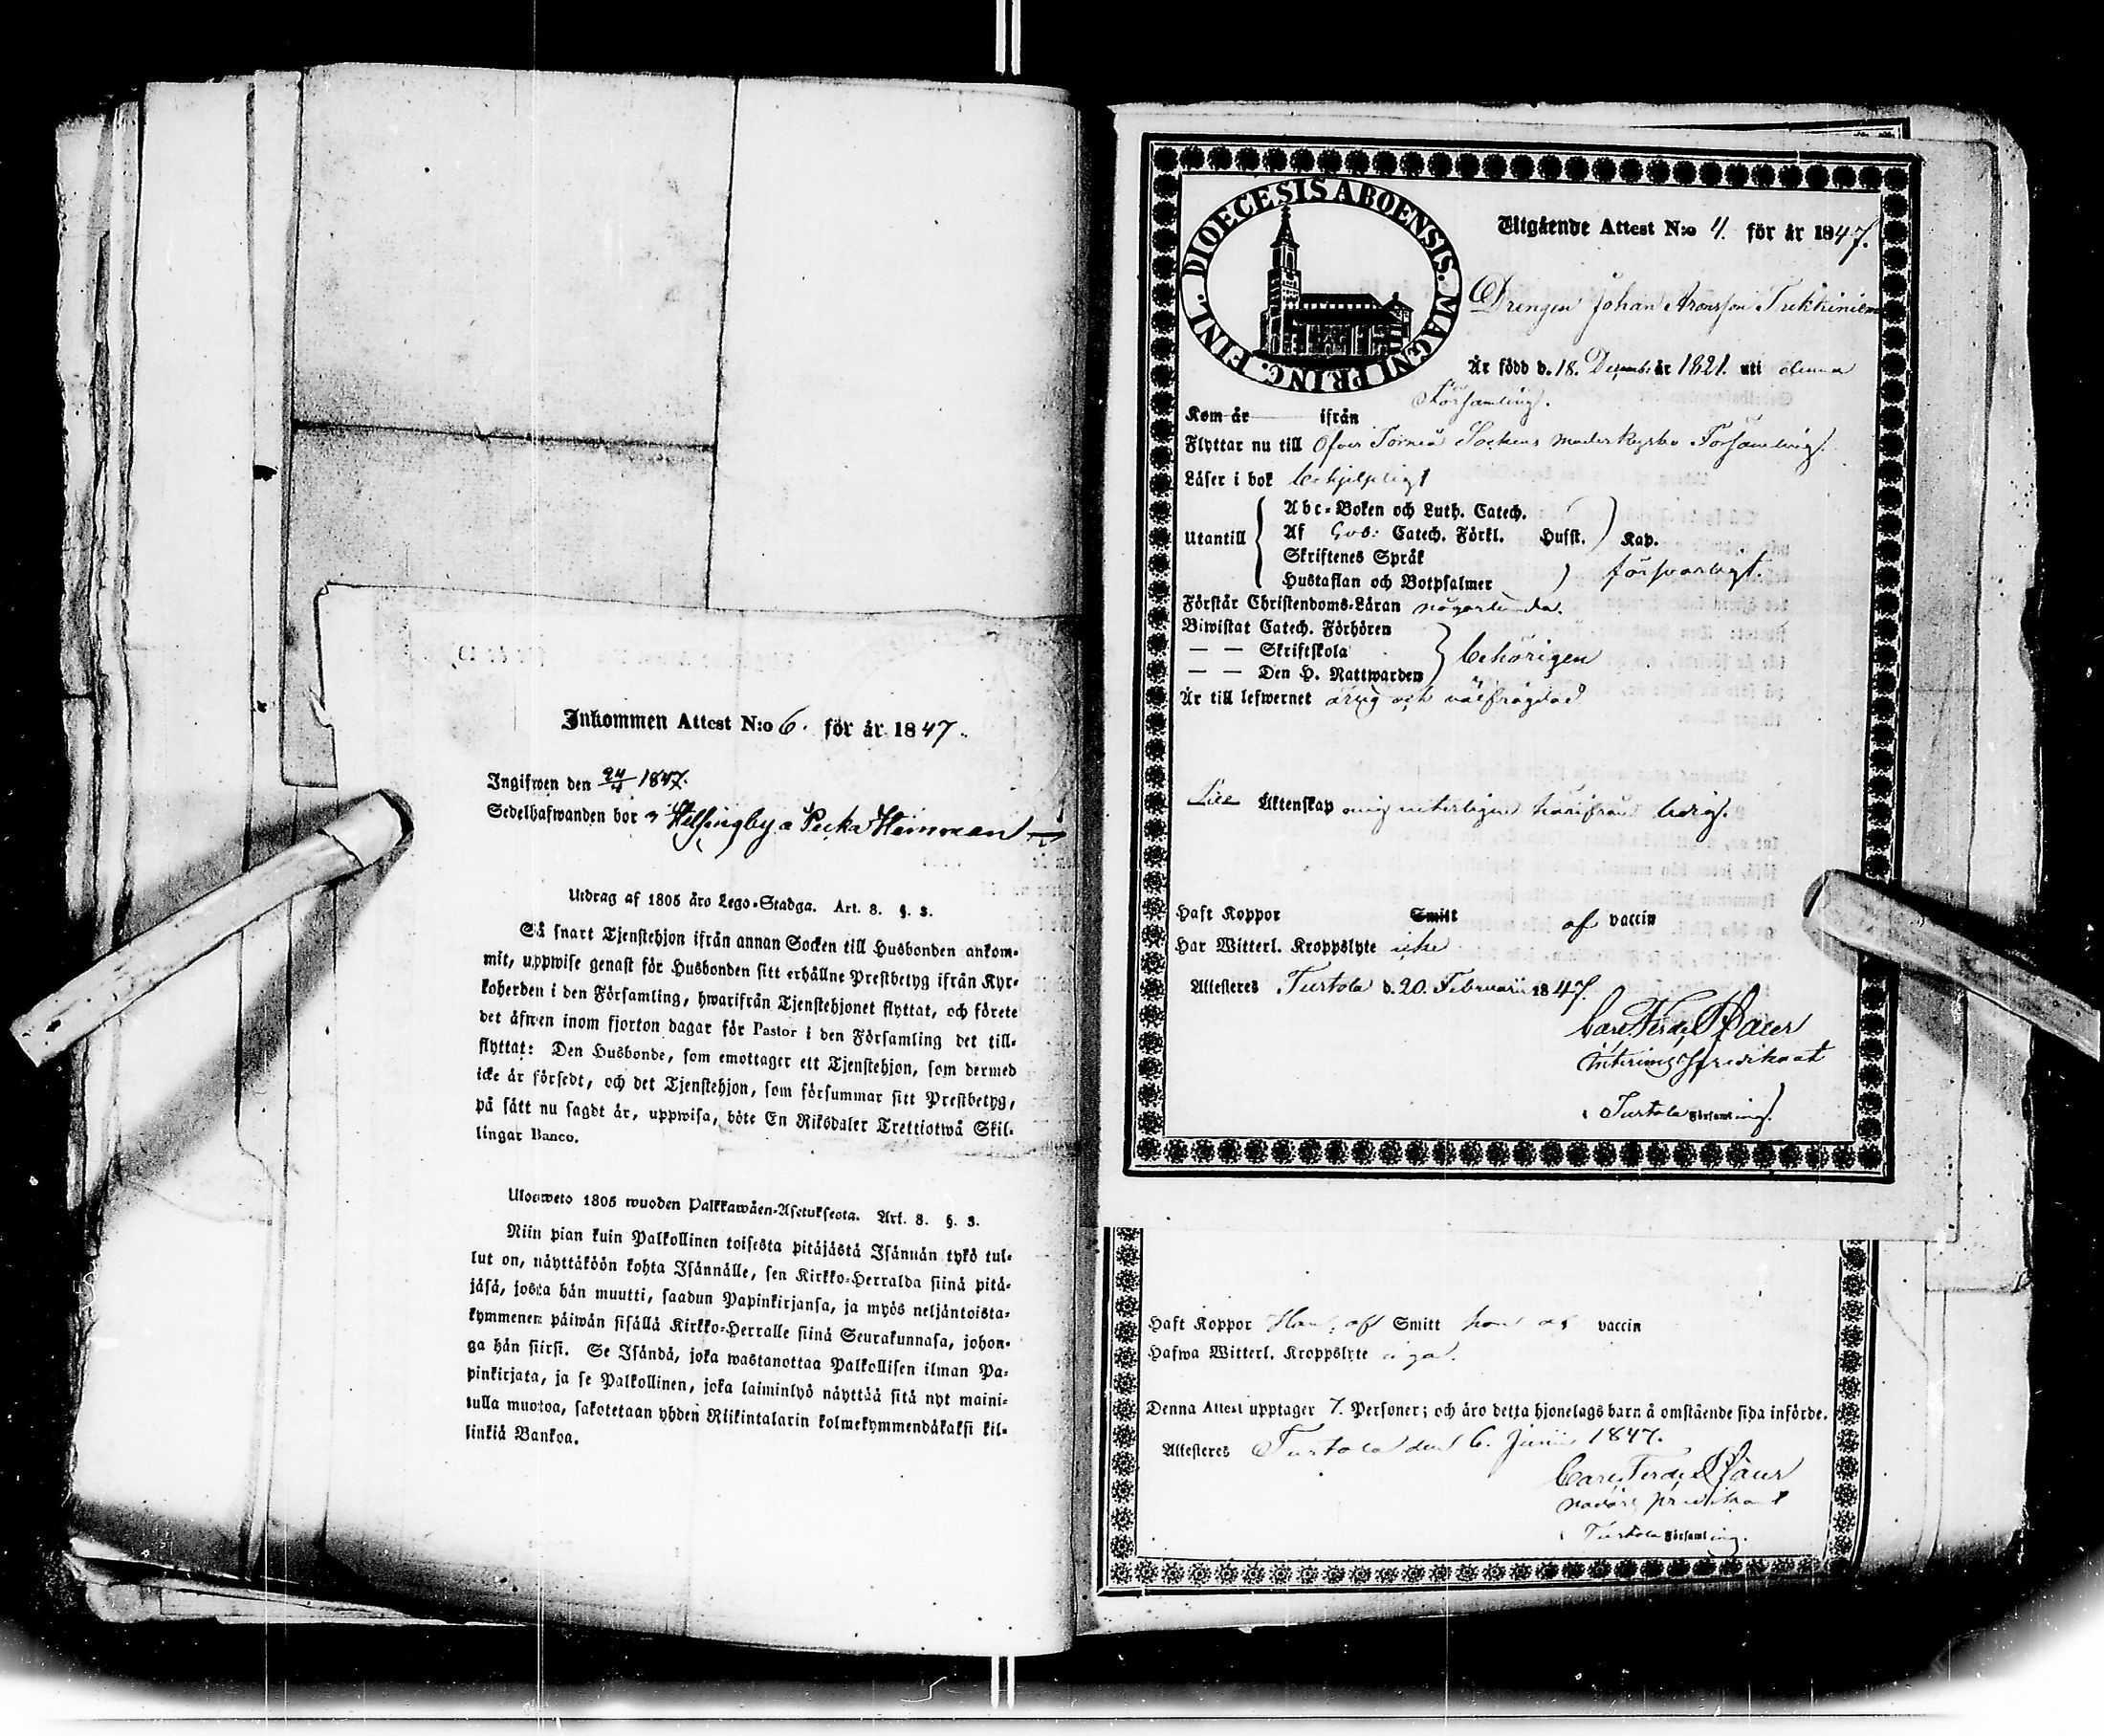 Inkommen Attest N:o 6. för år 1847.
Ingifwen den 24/4 1847.
Sedelhafwanden bor i Helsingby a Pecka Heinman
Utdrag af 1805 års Lego-Stadga. Art. 8. §. 3.
Så snart Tjenstehjon ifrån annan Socken till Husbonden ankom-
mit, uppwise genast för Husbonden sitt erhållne Prestbetyg ifrån Kyr-
koherden i den Församling, hwarifrån Tjenstehjonet flyttat, och förete
det äfwen inom fjorton dagar för Pastor i den Församling det till-
flyttat: Den Husbonde, som emottager ett Tjenstehjon, som dermed
icke är försedt, och det Tjenstehjon, som försummar sitt Prestbetyg,
på sätt nu sagdt är, uppwisa, böte En Riksdaler Trettiotwå Skil-
lingar Banco.
Ulosweto 1805 wuoden Palkkawäen-Asetuksesta. Art. 8. §. 3.
Niin pian kuin Palkollinen toisesta pitäjästä Isännän tykö tul-
lut on, näyttäköön kohta Isännälle, sen Kirkko-Herralda siinä pitä-
jäsä, josta hän muutti, saadun Papinkirjansa, ja myös neljäntoista-
kymmenen päiwän sisällä Kirkko-Herralle siinä Seurakunnasa, johon-
ga hän siirsi. Se Isändä, joka wastanottaa Palkollisen ilman Pa-
pinkirjata, ja se Palkollinen, joka laiminlyö näyttää sitä nyt maini-
tulla muotoa, sakotetaan yhden Riikintalarin kolmekymmendäkaksi kil-
linkiä Bankoa.
DIOECESIS ABOENSIS. MAGNI PRINC. FINL.
Utgående Attest N:o 4. för år 1847.
Drengen Johan Aronsson
Är född d. 18. Decemb. år 1821. uti denna
Församling.
Kom år ifrån
Flyttar nu till Öfver Torneå Sockens moderkyrko Församling.
Läser i bok behjelpligt
Utantill
Abc-Boken och Luth. Catech.
Af Svb: Catech. Förkl. Husst. Kap.
Skriftenes Språk
Hustaflan och Botpsalmer försvarligt.
Förstår Christendoms-Läran någorlunda.
Biwistat Catech. Förhören
— — Skriftskola behörigen
— — Den H. Nattwarden
Är till lefwernet ärlig och välfrägdad
Till Äktenskap mig veterligen härifrån ledig.
Haft Koppor Smitt af vaccin
Har Witterl. Kroppslyte icke
Attesteres Turtola d. 20. Februarii 1847.
Carl Ferd.
Interims predikant
i Turtola Församling.
Haft Koppor Smitt vaccin
Hafwa Witterl. Kroppslyte
Denna Attest upptager 7. Personer; och äro detta hjonelags barn å omstående sida införde.
Attesteres Turtola den 6. Junii 1847.
Carl Ferd.
predikant
i Turtola Församling.